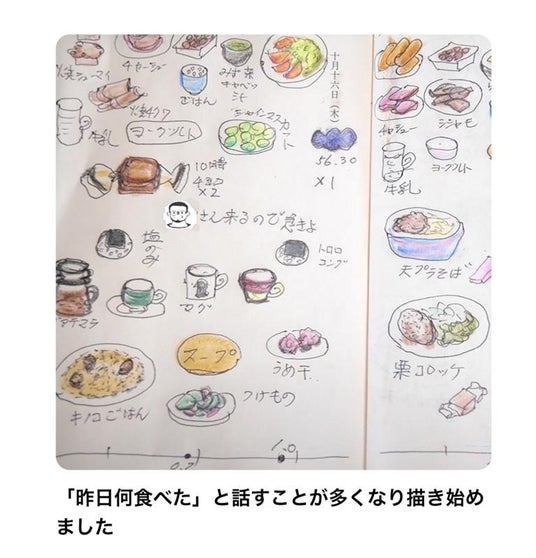 焼シューマイ
チャーシュー
ごはん
みず菜
キャベツ
十月十六日(木)
牛乳
焼チクワ
ヨーグルト
シャインマスカット
56.30
×1
10時
×2
さん来るので急きよ
塩のみ
トロロ
コンブ
マグ
スープ
うめ干
キノコごはん
つけもの
チャーシュー
シシャモ
牛乳
ヨーグルト
天プラそば
栗コロッケ
「昨日何食べた」と話すことが多くなり描き始め
ました